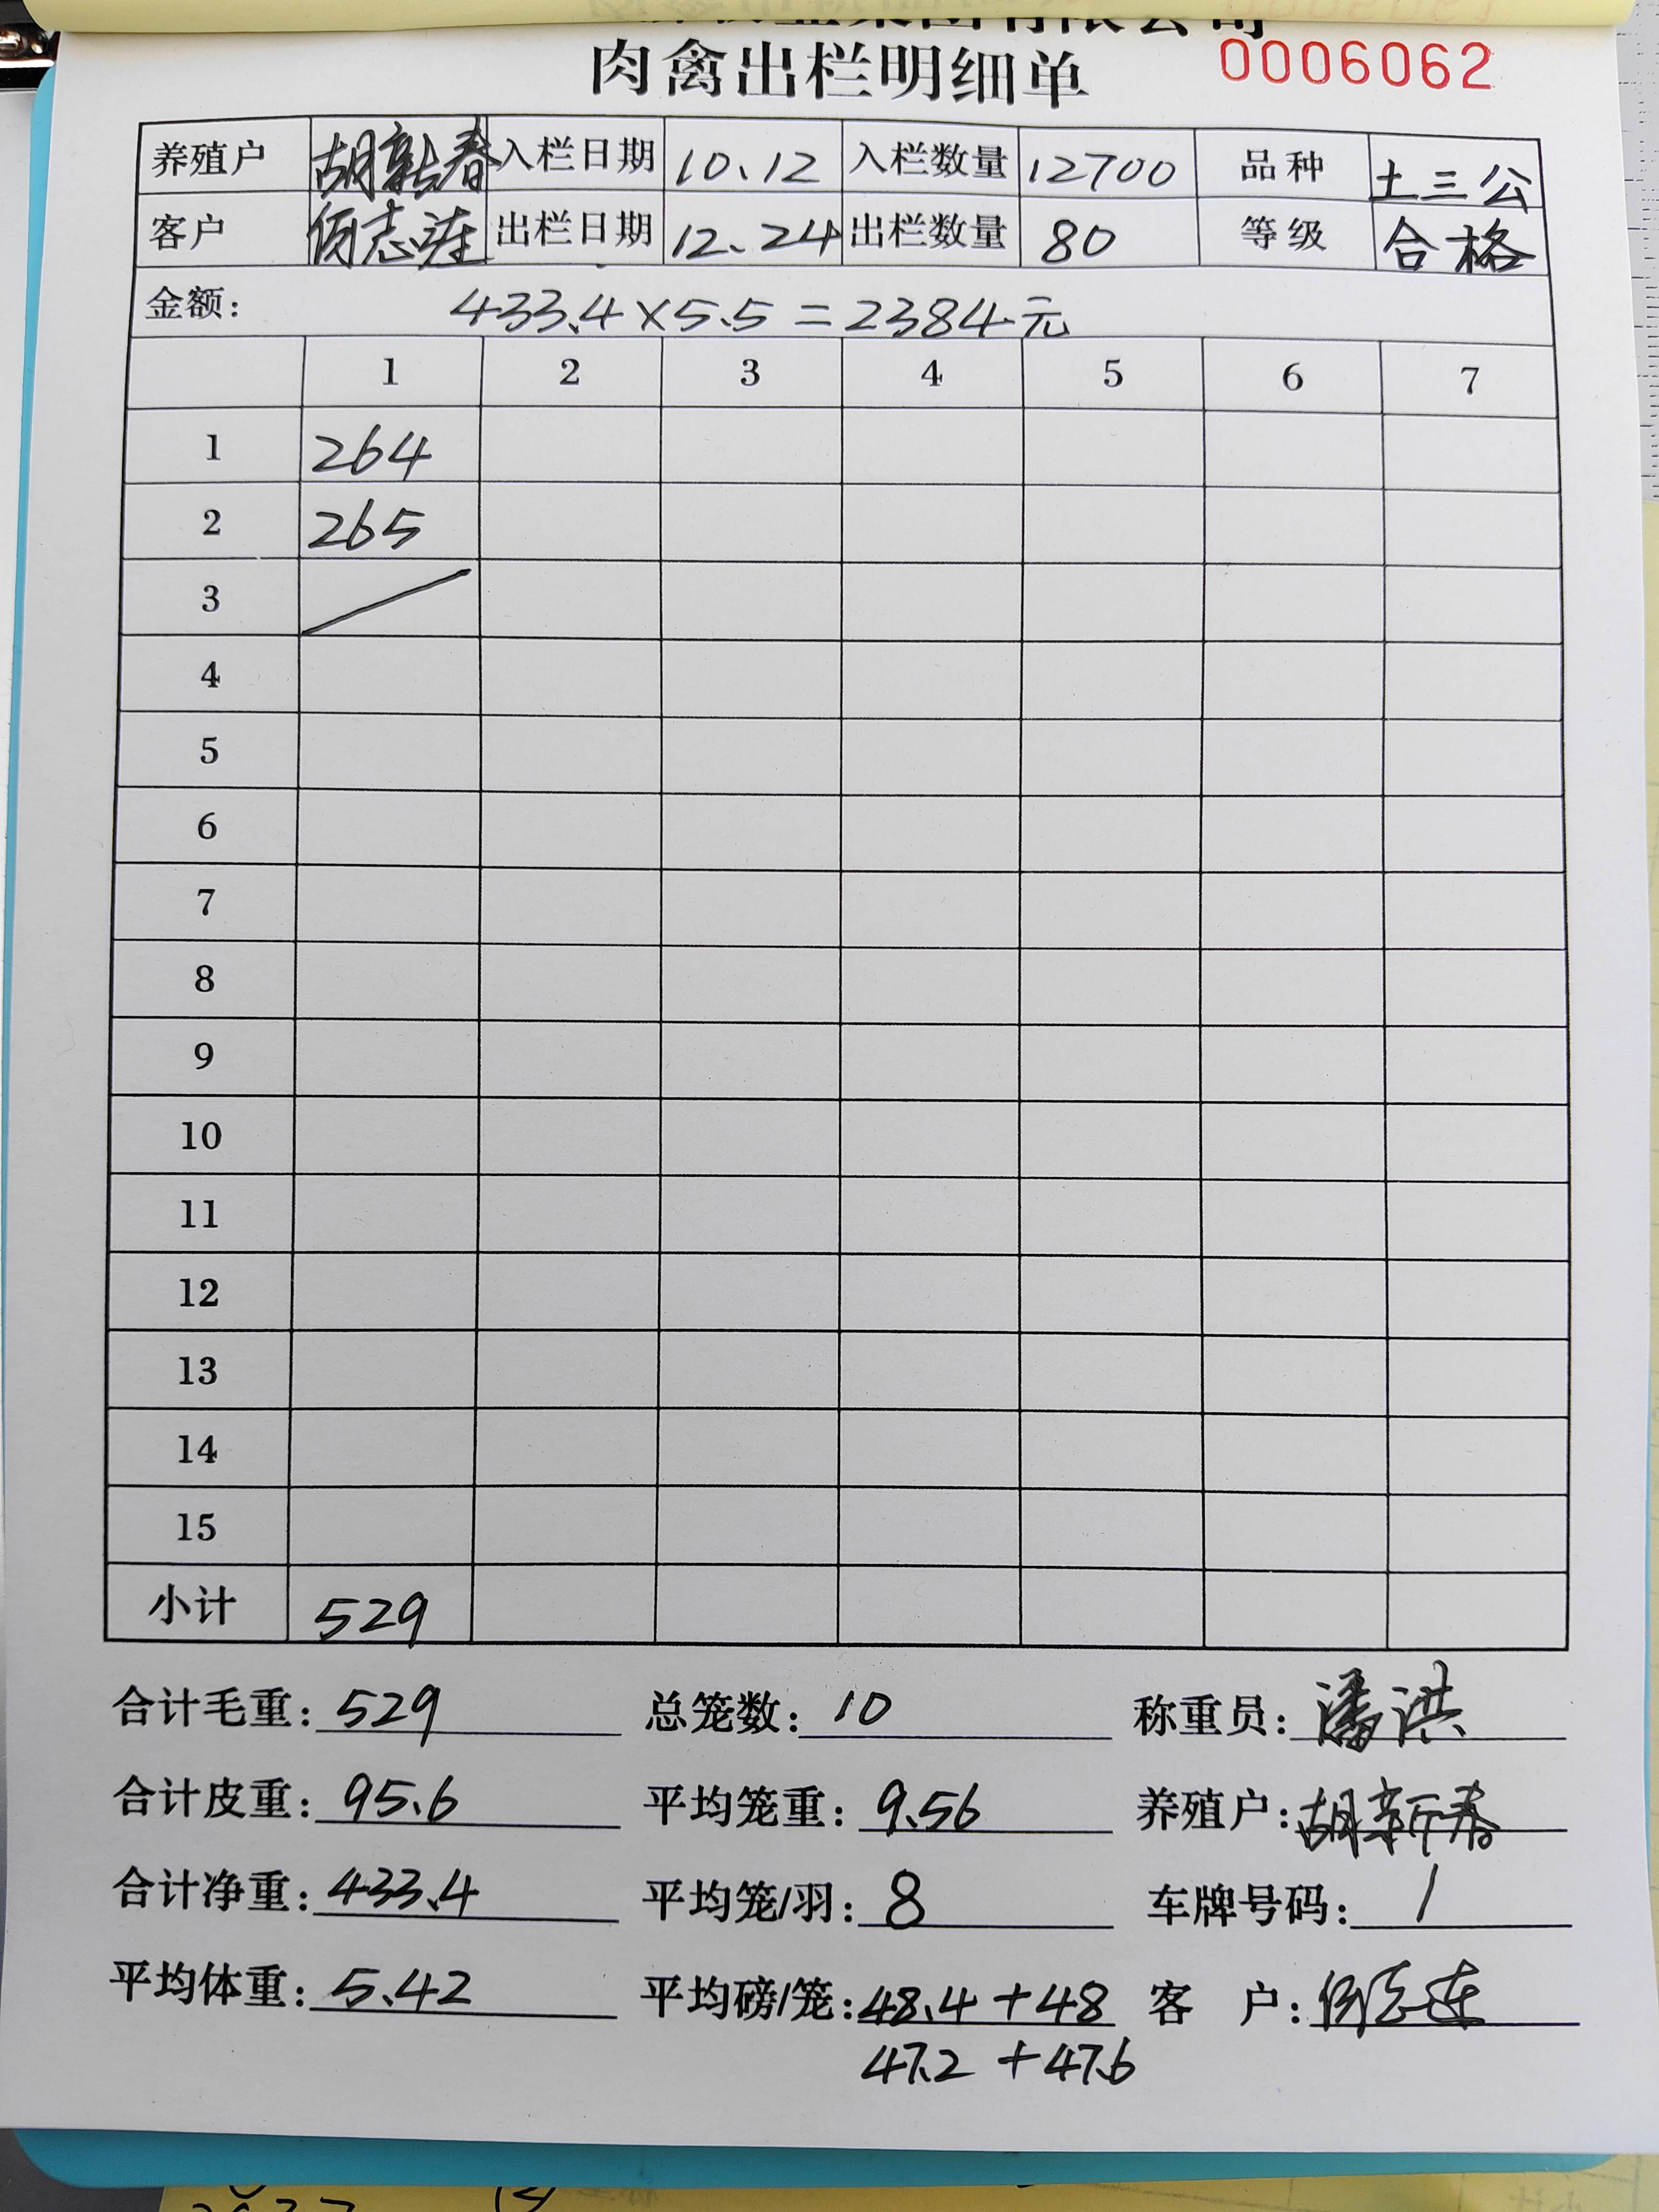 集团有限公司
肉禽出栏明细单 0006062
养殖户 胡新春 入栏日期 10.12 入栏数量 12700 品种 土三公
客户 何志莲 出栏日期 12.24 出栏数量 80 等级 合格
金额: 433.4×5.5=2384元
1 2 3 4 5 6 7
1 264
2 265
3
4
5
6
7
8
9
10
11
12
13
14
15
小计 529
合计毛重: 529 总笼数: 10 称重员: 潘洪
合计皮重: 95.6 平均笼重: 9.56 养殖户: 胡新春
合计净重: 433.4 平均笼/羽: 8 车牌号码: /
平均体重: 5.42 平均磅/笼: 48.4+48 客 户:
47.2+47.6